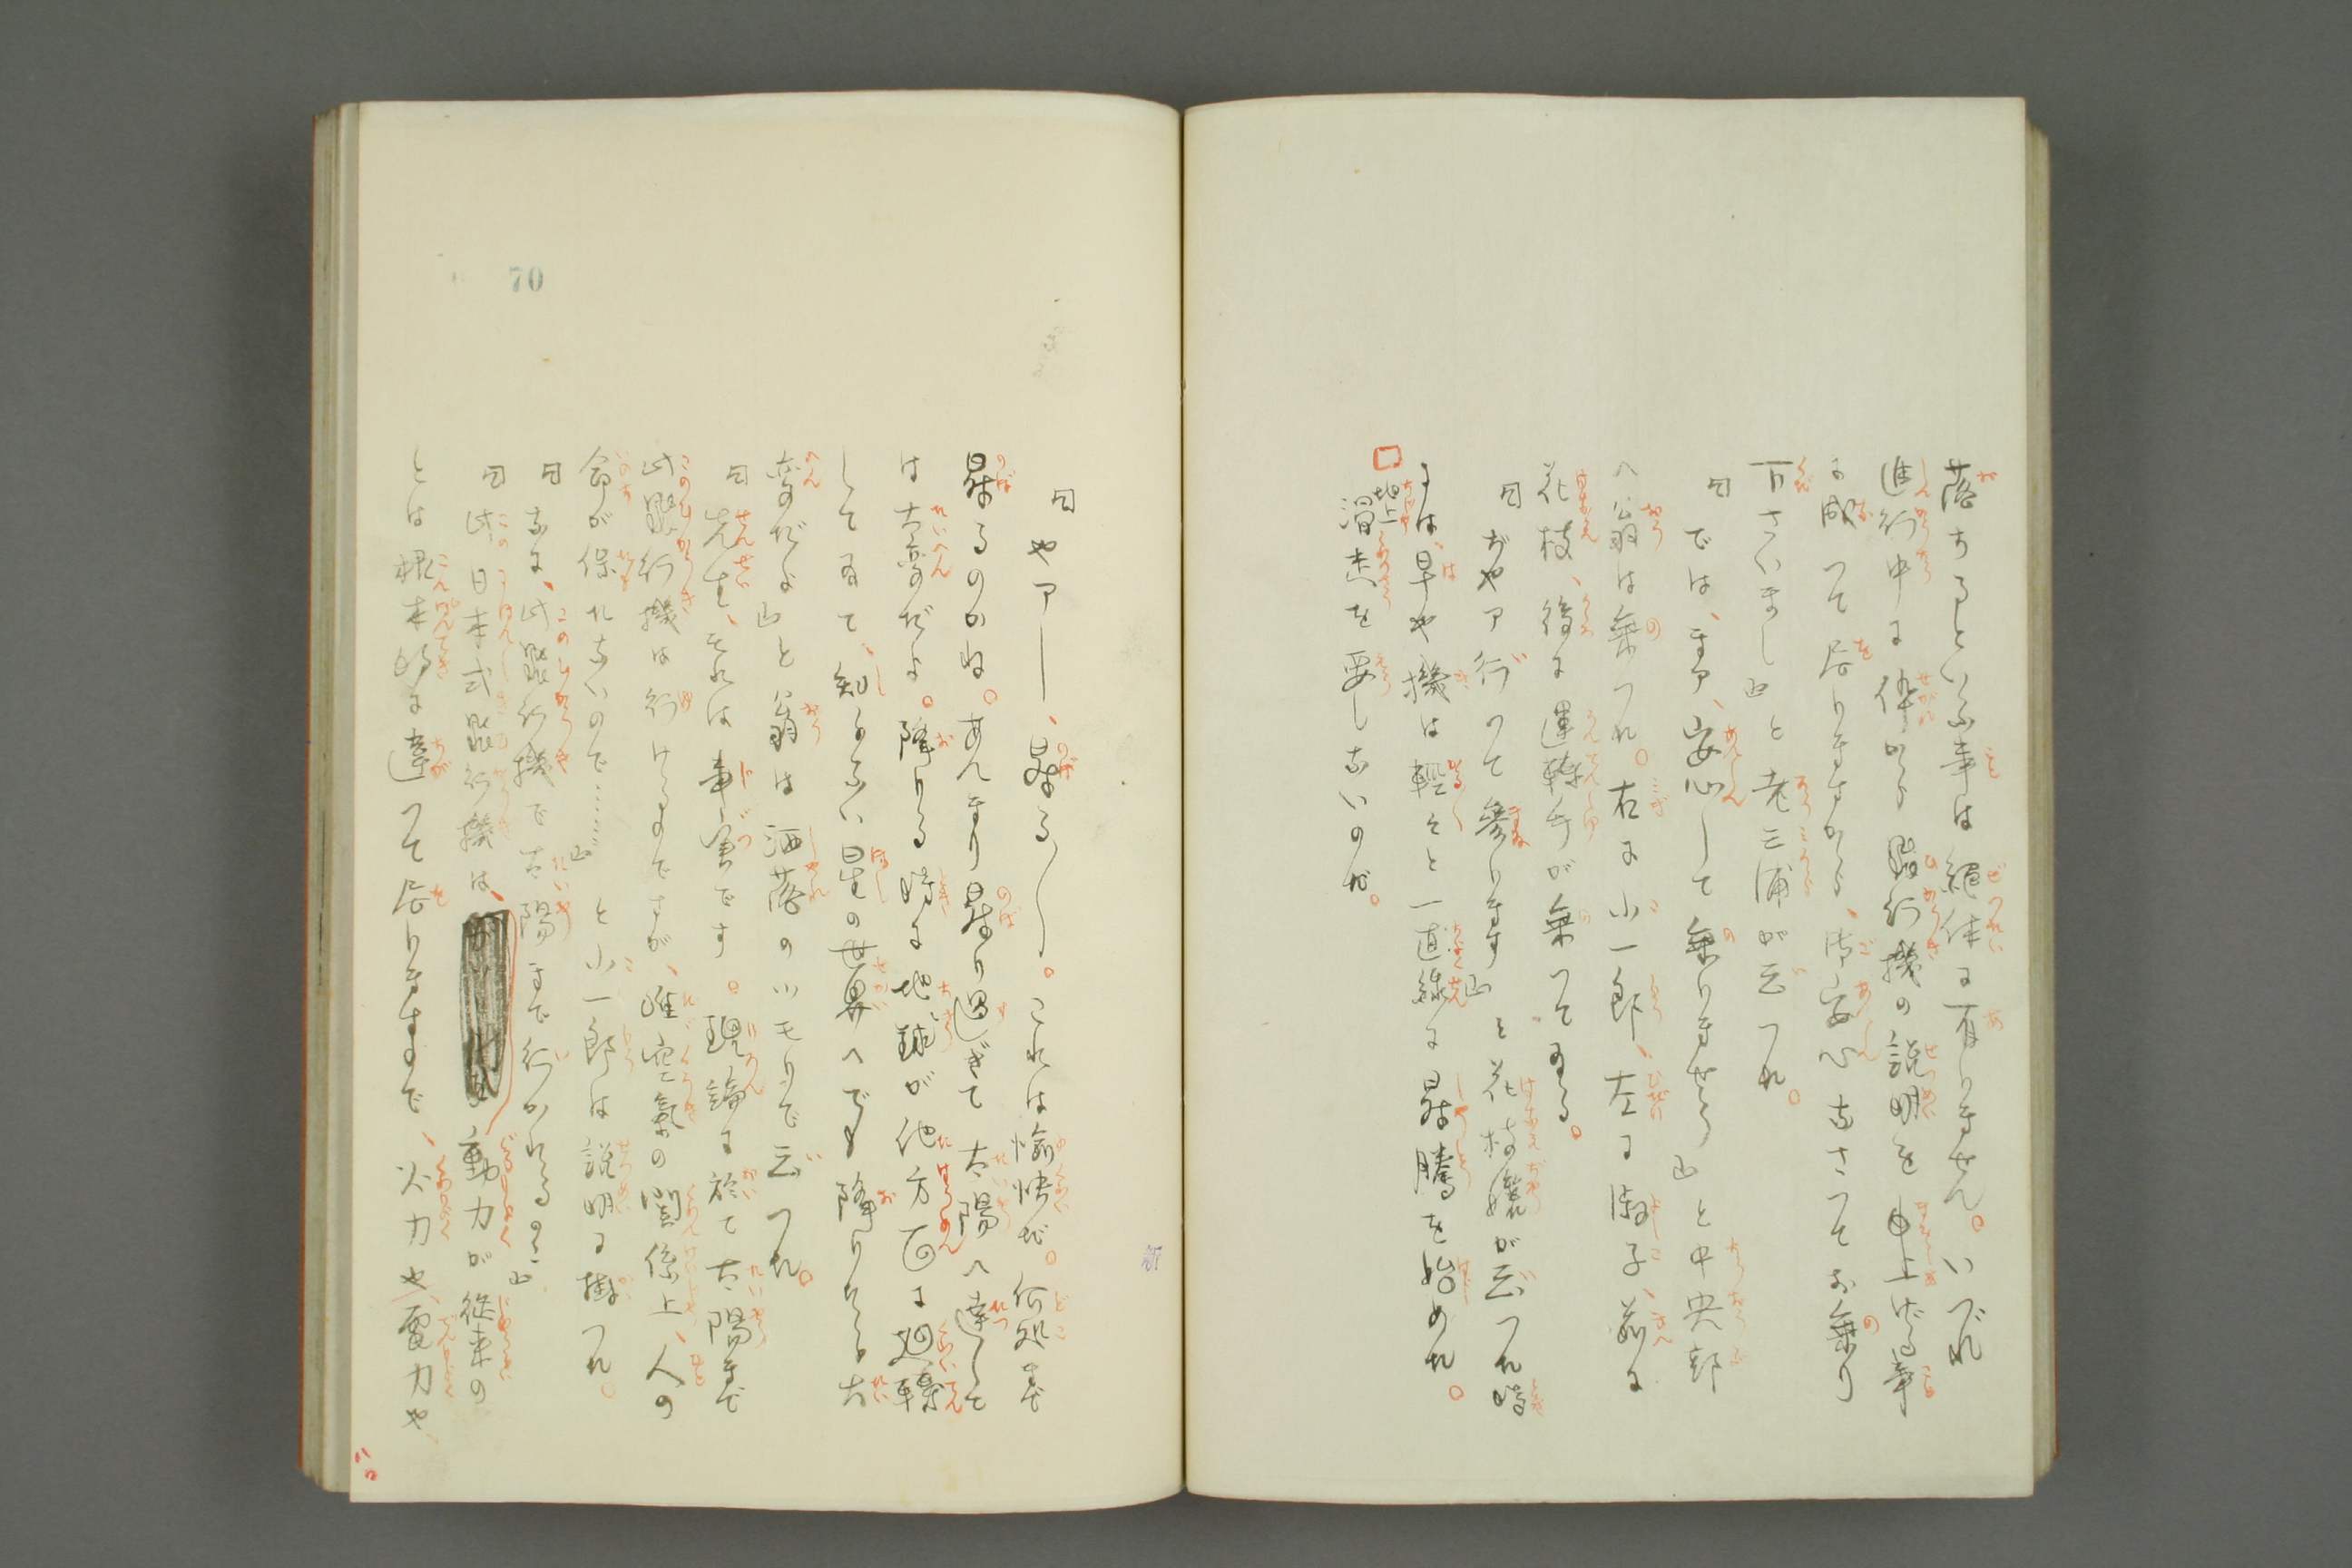 落ちるといふ事は絶体に有りません。いづれ
進行中に伜から飛行機の説明を申上げる事
に成つて居りますから、御安心なさつてお乗り
下さいまし』と老三浦が云つた。
『では、まア、安心して乗りませう』と中央部
へ翁は乗つた。右に小一郎、左に淑子、前に
花枝、後に運転手が乗つてゐる。
『ぢやア行つて参ります』と花枝嬢が云つた時
には、早や機は軽々と一直線に昇騰を始めた。
地上滑走を要しないのだ。
『やアー、昇る〳〵。これは愉快だ。何処まで
昇るのかね。あんまり昇り過ぎて太陽へ達して
は大変だよ。降りる時に地球が他方面に廻転
してゐて、知らない星の世界へでも降りたら大
変だよ』と翁は洒落のツモリで云つた。
『先生、それは事実です。理論に於て太陽まで
此飛行機は行けるのですが、唯空気の関係上、人の
命が保たないので……』と小一郎は説明に掛つた。
『なに、此飛行機で太陽まで行かれるの？』
『此日本式飛行機は、動力が従来の
とは根本的に違つて居りますので、火力や電力や、
70